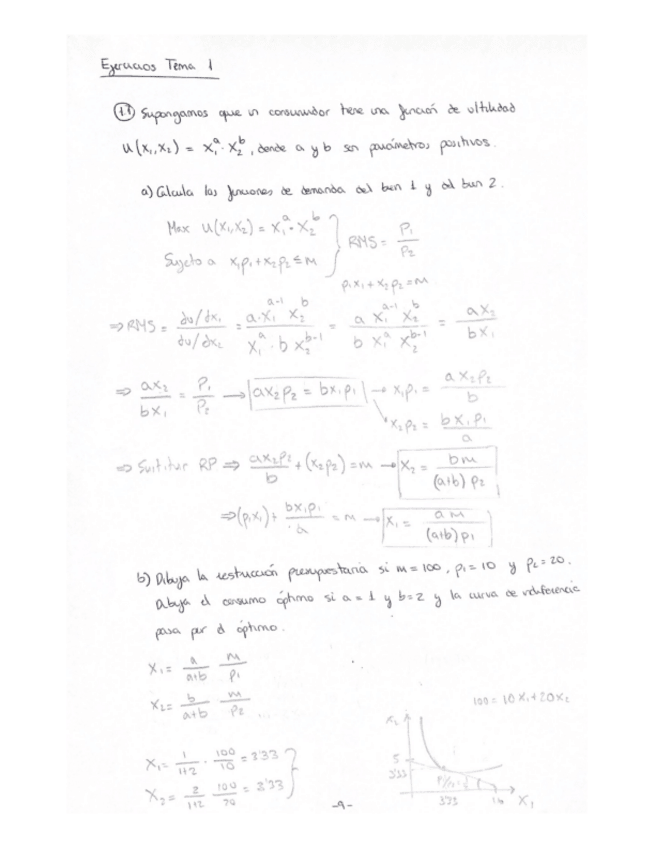 Ejercicios Tema 1
1.1 Supongamos que un consumidor tiene una función de utilidad
U(x₁,x₂) = x₁ᵃ · x₂ᵇ, donde a y b son parámetros positivos.
a) Calcula las funciones de demanda del bien 1 y del bien 2.
Max U(x₁,x₂) = x₁ᵃ · x₂ᵇ
Sujeto a x₁p₁ + x₂p₂ ≤ m
RMS = P₁/P₂
p₁x₁ + x₂p₂ = m
⇒ RMS = (du/dx₁)/(du/dx₂) = (a·x₁ᵃ⁻¹ x₂ᵇ)/(x₁ᵃ · b x₂ᵇ⁻¹) = (a x₁ᵃ⁻¹ x₂ᵇ)/(b x₁ᵃ x₂ᵇ⁻¹) = ax₂/bx₁
⇒ ax₂/bx₁ = P₁/P₂ → ax₂p₂ = bx₁p₁ → x₁p₁ = ax₂p₂/b
x₂p₂ = bx₁p₁/a
RP ⇒ ax₂p₂/b + (x₂p₂) = m → x₂ = bm/(a+b)p₂
⇒ (p₁x₁) + bx₁p₁/a = m → x₁ = am/(a+b)p₁
b) Dibuja la restricción presupuestaria si m = 100, p₁ = 10 y p₂ = 20.
Dibuja el consumo óptimo si a = 1 y b = 2 y la curva de indiferencia
pasa por el óptimo.
x₁ = a/(a+b) m/p₁
x₂ = b/(a+b) m/p₂ ...
100 = 10x₁ + 20x₂
x₁ = 1/(1+2) · 100/10 = 3'33
x₂ = 2/(1+2) 100/20 = 3'33
x₂
5
3'33
3'33
10
x₁